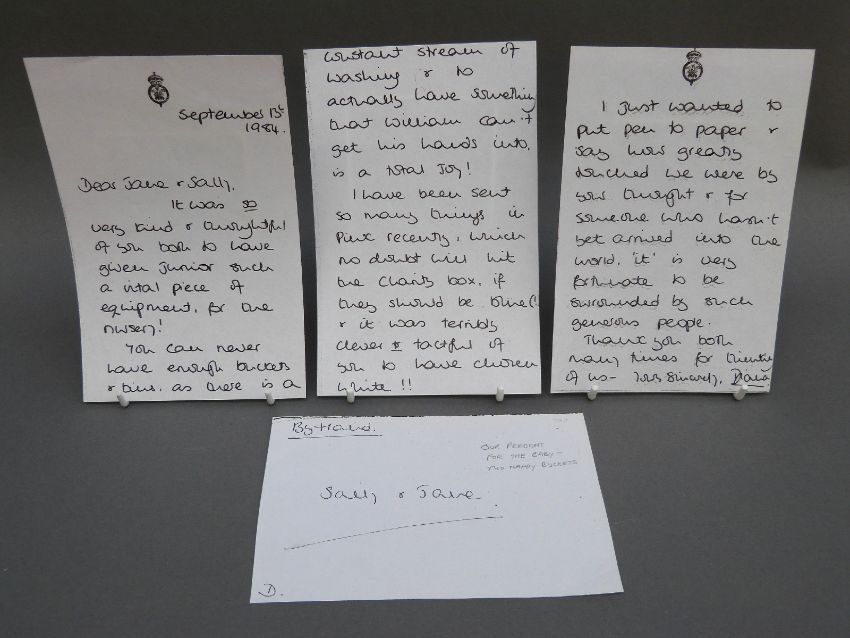 September 1st
1984.
Dear Jane & Sally,
It was so
very kind & thoughtful
of you both to have
given junior such
a vital piece of
equipment, for the
nursery!
You can never
have enough buckets
& bins, as there is a
constant stream of
washing & to
actually have something
that William can't
get his hands into,
is a total joy!
I have been sent
so many things in
Pink recently, which
no doubt will hit
the Charity box, if
they should be blue(!)
& it was terribly
clever & tactful of
you to have chosen
white !!
I just wanted to
put pen to paper &
say how greatly
touched we were by
your thought & for
someone who hasn't
yet arrived into the
world, 'it' is very
fortunate to be
surrounded by such
generous people.
Thank you both
many times for
of us - Yours sincerely, Diana
By Hand.
OUR PRESENT
FOR THE BABY -
TWO NAPPY BUCKETS
Sally & Jane
D.